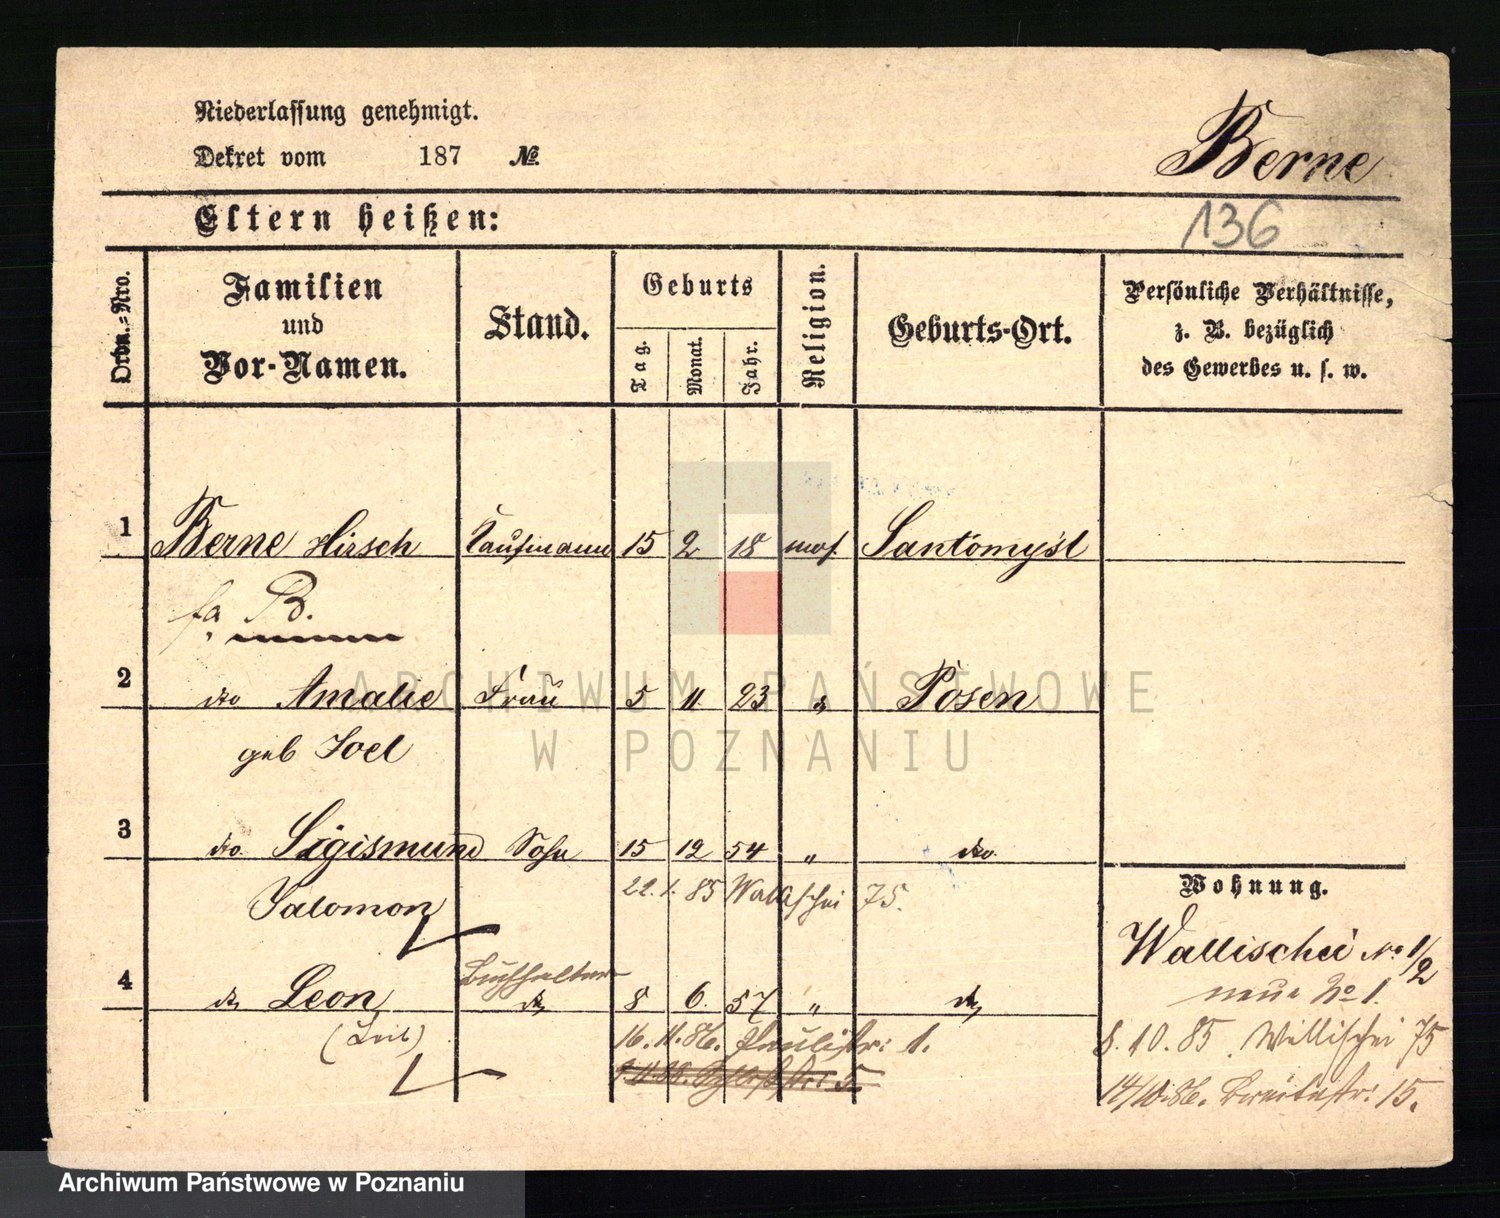 Niederlassung genehmigt.
Dekret vom 187 №.
Berne
136
Eltern heißen:
Ordn.-Nro.
Familien und Vor-Namen.
Stand.
Geburts
Tag.
Monat.
Jahr.
Religion.
Geburts-Ort.
Persönliche Verhältnisse,
z. B. bezüglich
des Gewerbes u. s. w.
1 Berne Hirsch Kaufmann 15 2 18 mos. Santomyśl
fa B.
2 dto Amalie Frau 5 11 23 " Posen
geb Joel
3 dto. Sigismund Sohn 15 12 54 " dto.
Salomon
22. 1. 85 Wallischei 75.
Wohnung.
Wallischei No 1/2
neue No 1.
Buchhalter
4 dto Leon dto 8 6. 57 " dto
(Leib)
16. 11. 86. Paulistr: 1.
8. 10. 85. Wallischei 75
14/10. 86. Breitestr: 15.
ARCHIWUM PAŃSTWOWE
W POZNANIU
Archiwum Państwowe w Poznaniu